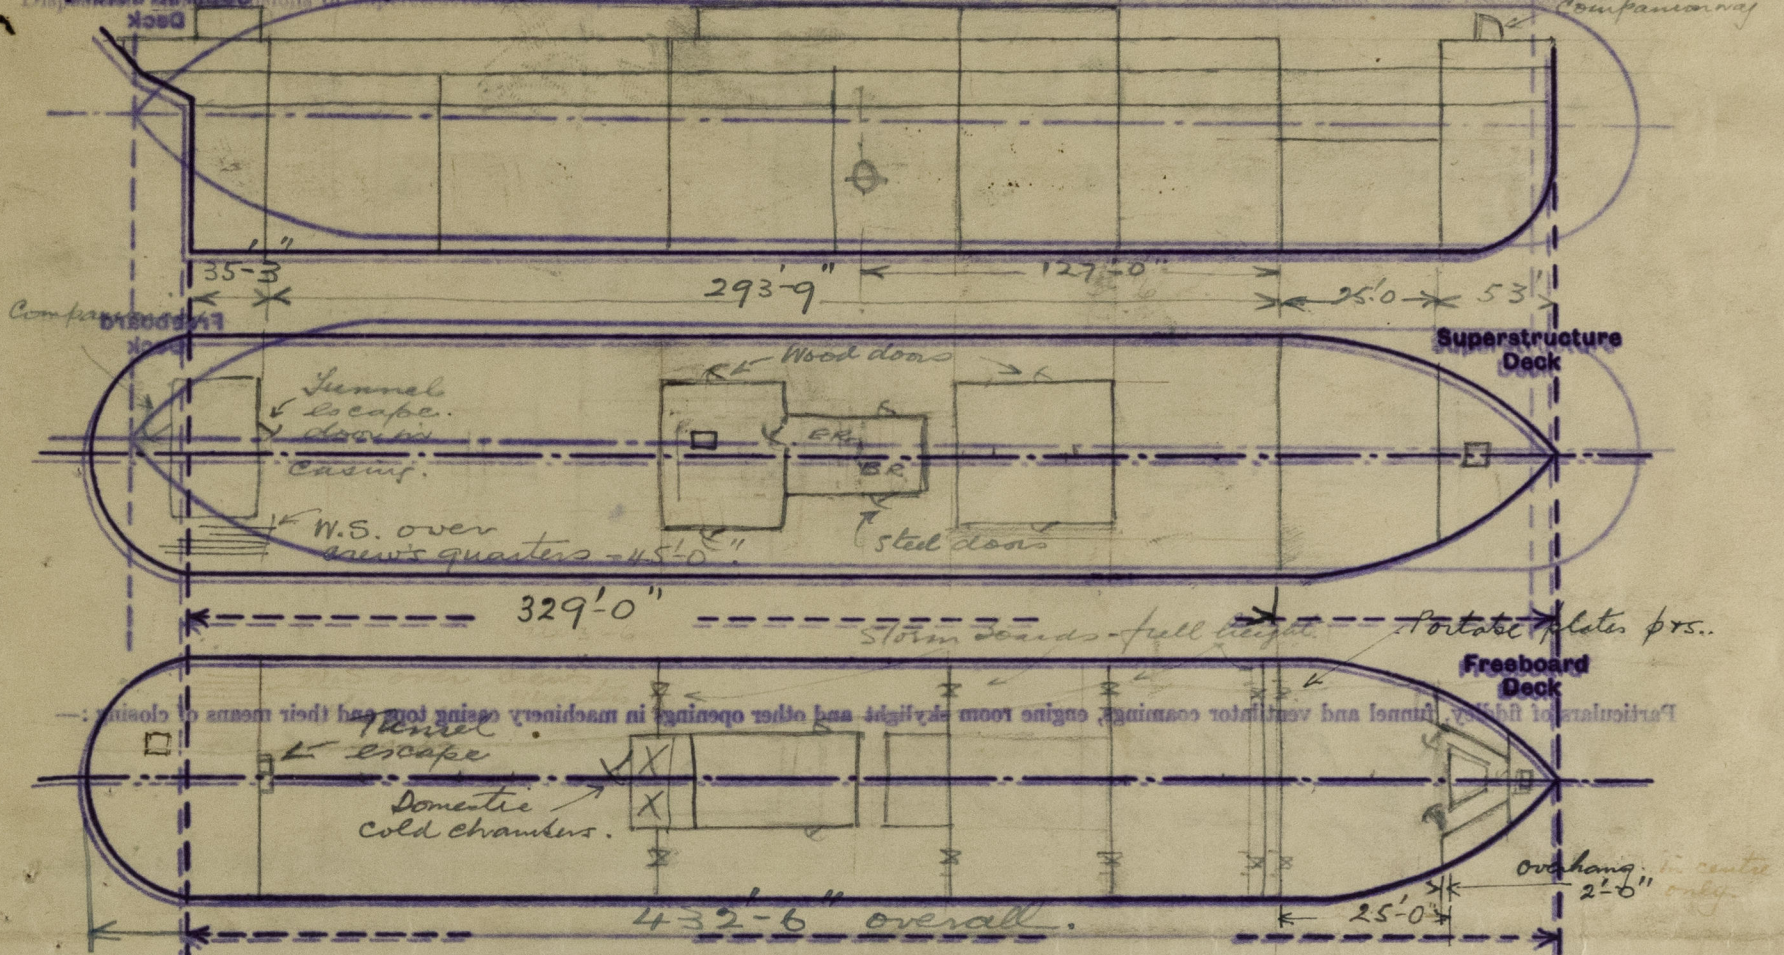 Companionway
35'-3"
293'-9"
127'-0"
25'.0
53'
Superstructure
Deck
Wood doors
Tunnel
escape.
door in
Casing.
E.R.
B.R.
W.S. over
crew's quarters = 45'-0".
Steel doors
329'-0"
Storm boards - full height.
Portable plates prs..
Freeboard
Deck
Particulars of fiddley, funnel and ventilator coamings, engine room skylight and other openings in machinery casing tops and their means of closing :—
Tunnel
escape
X
X
Domestic
cold chambers.
overhang. in centre
2'-0" only
25'-0"
432'-6" overall.